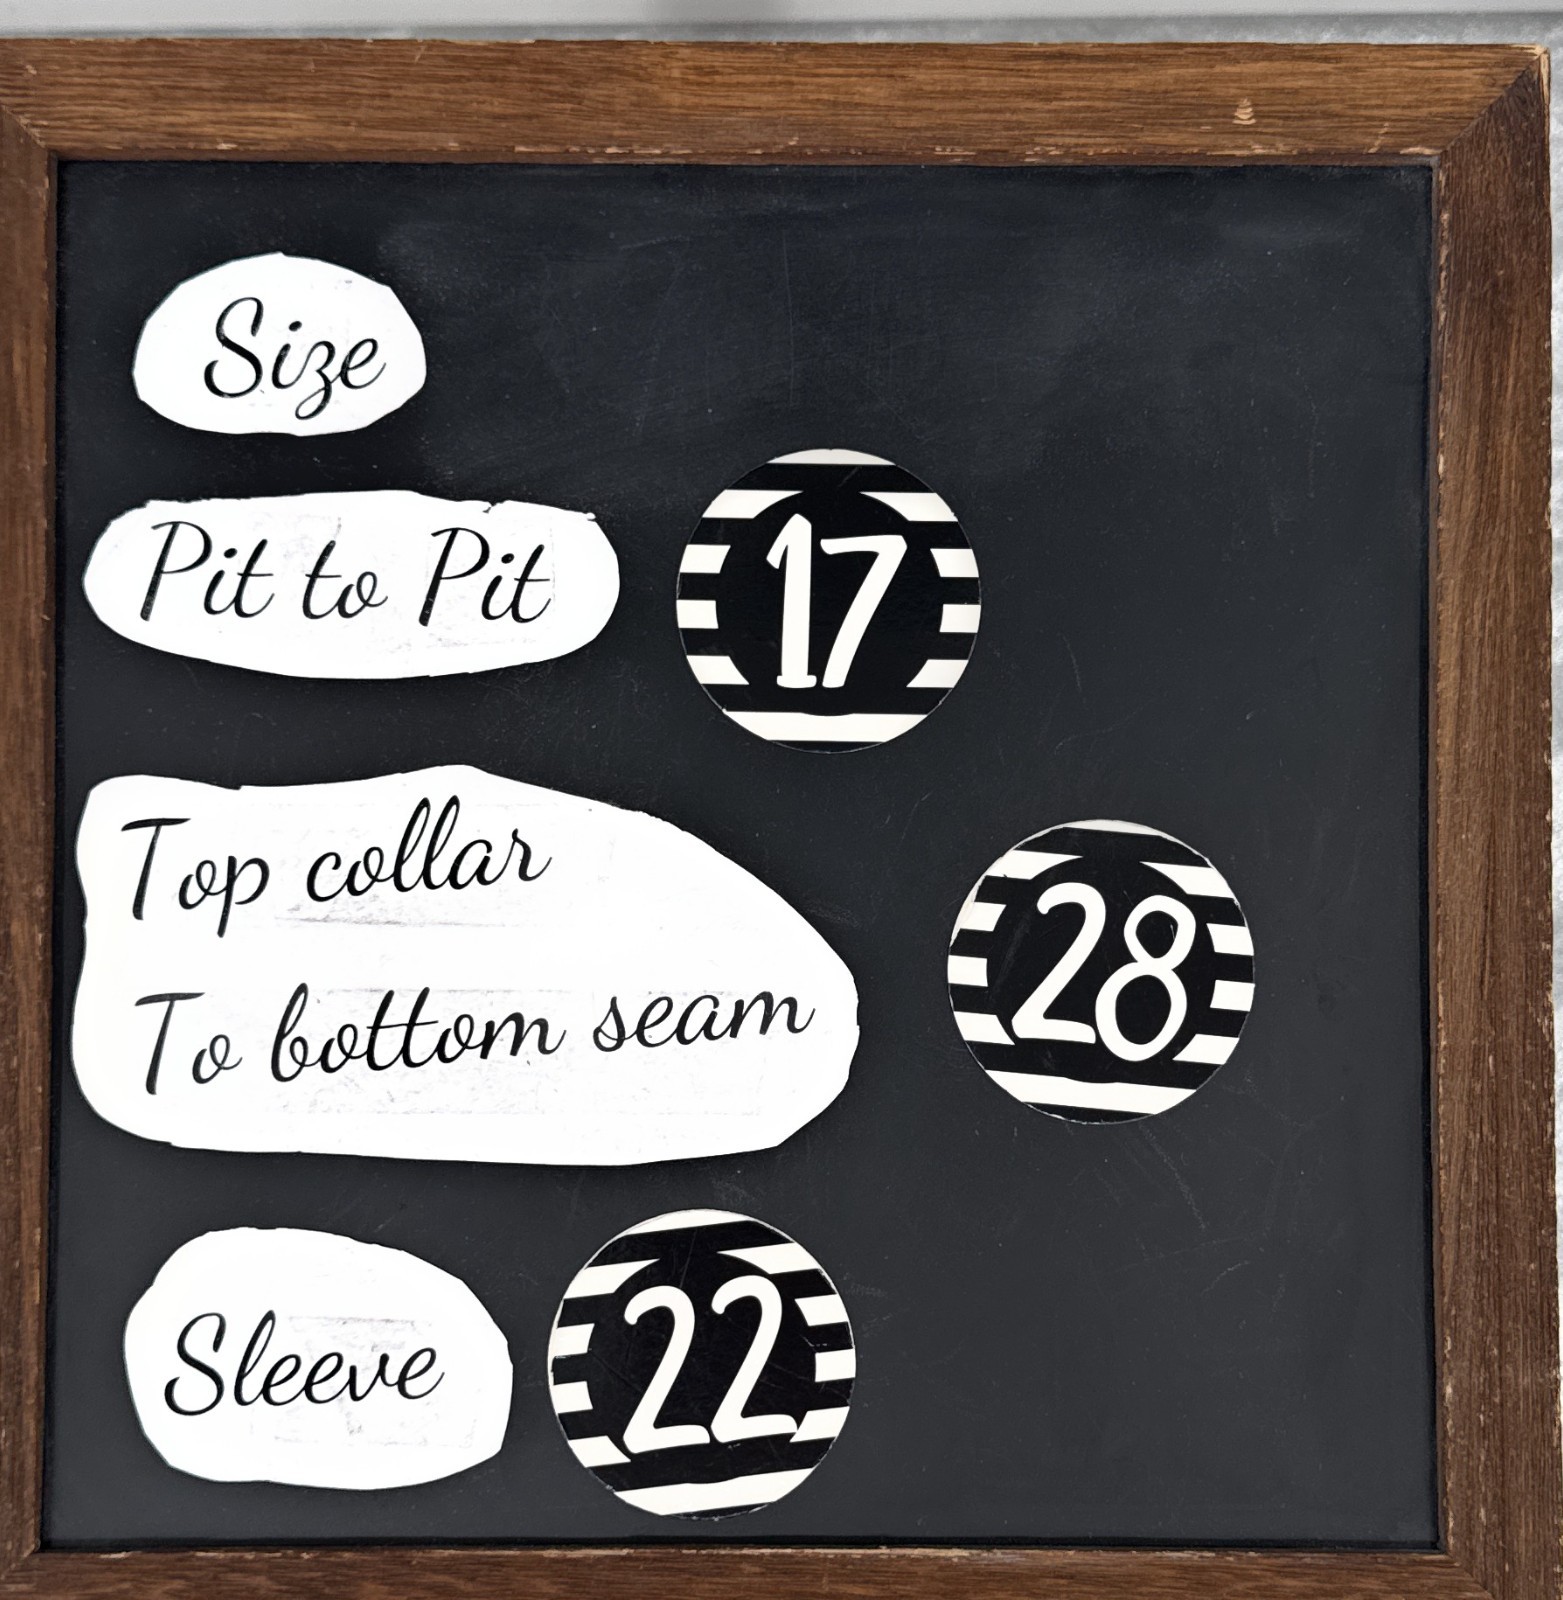 Size
Pit to Pit 17
Top collar
To bottom seam 28
Sleeve 22